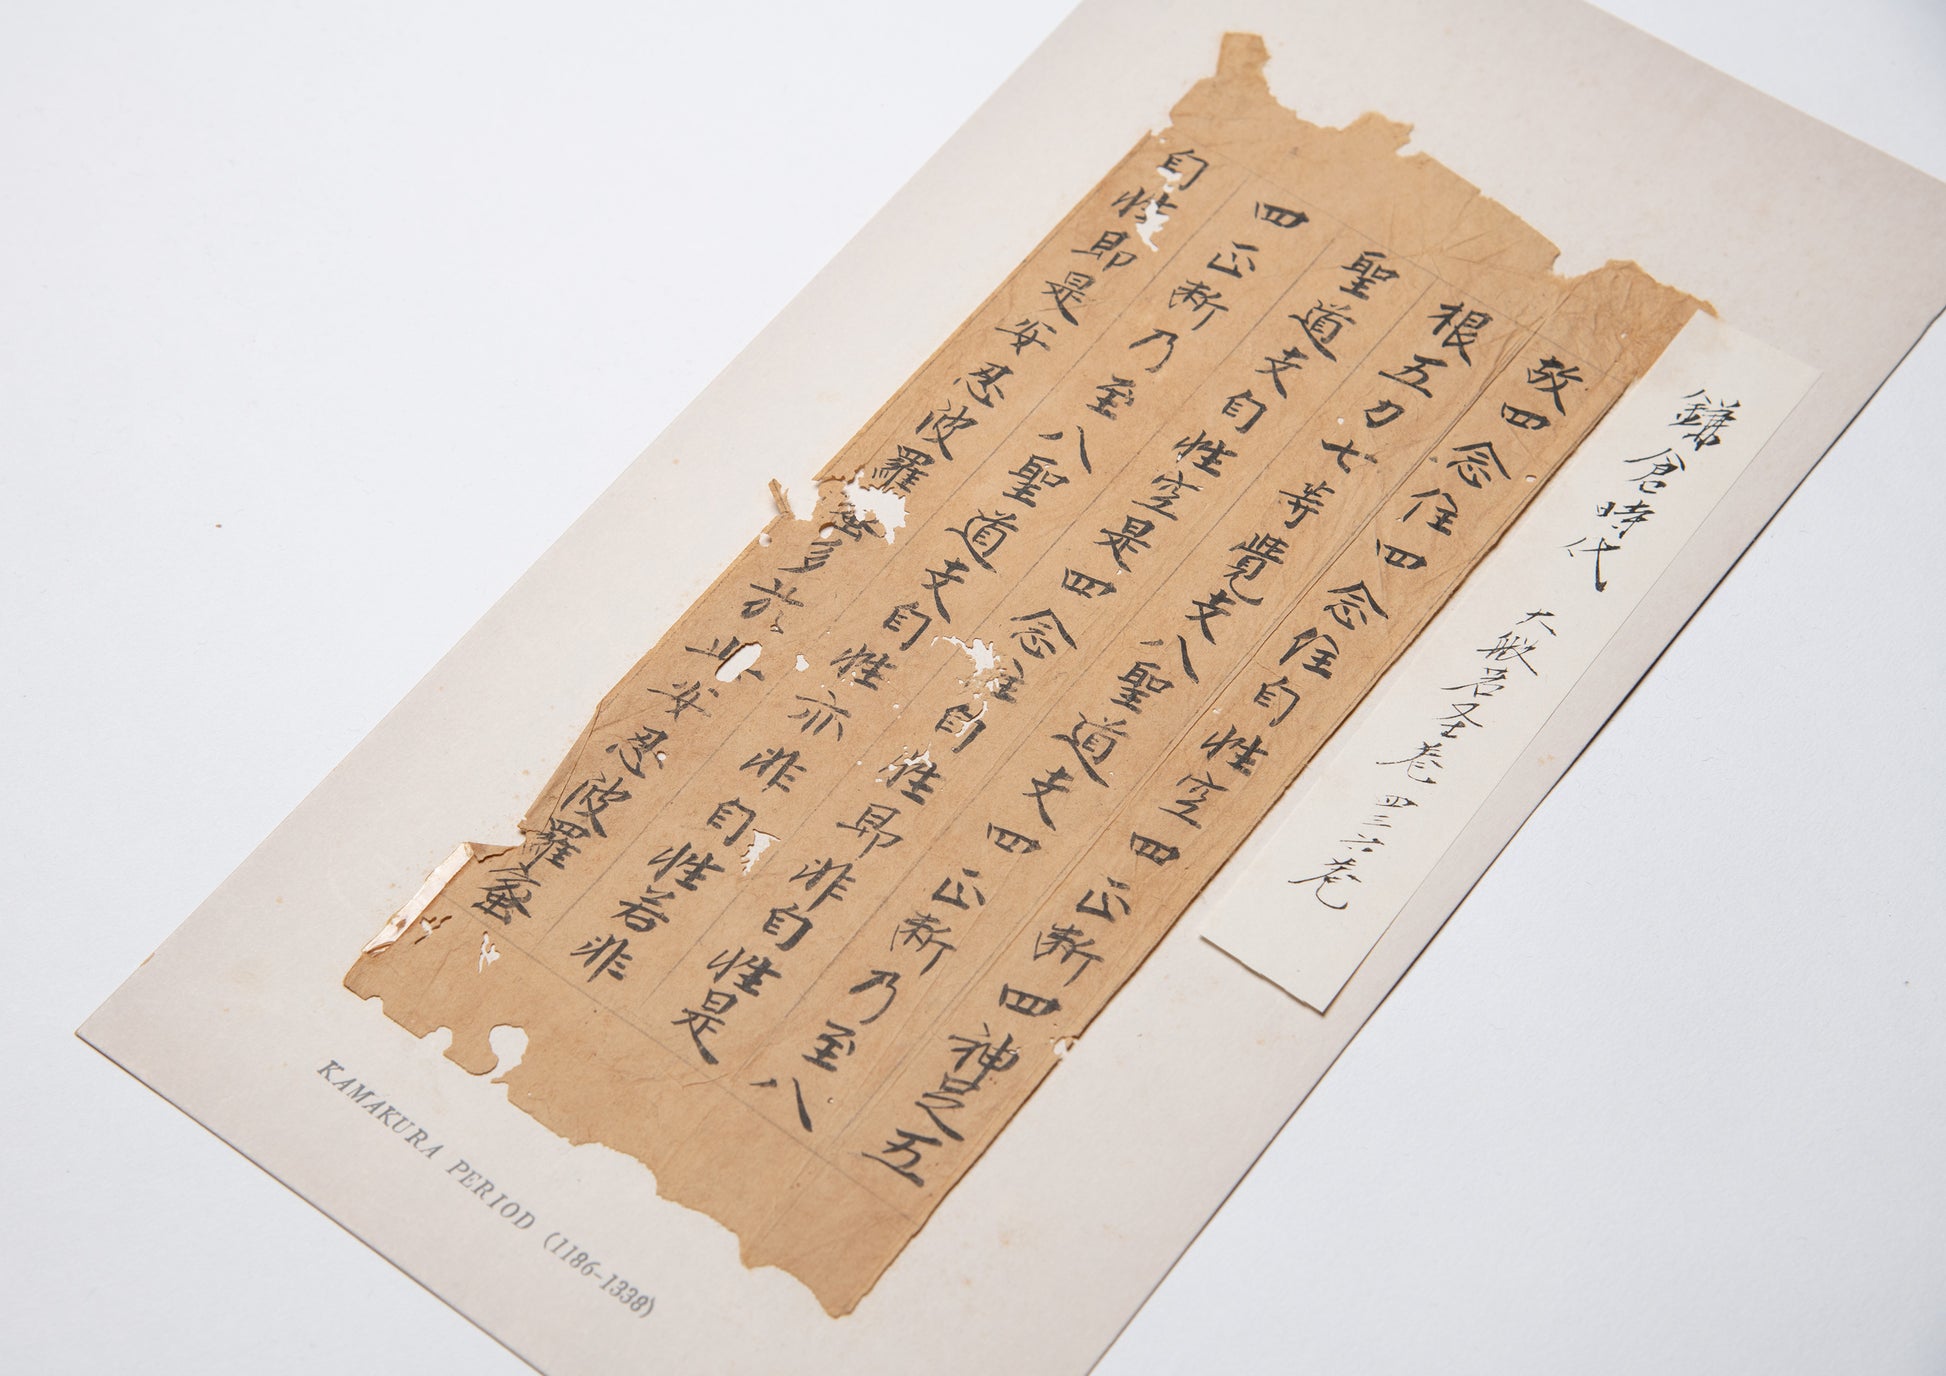 鎌倉時代 大般若圣巻四三六巻
故四念住四念住自性空四正断四神足五
根五力七等覺支八聖道支四正断乃至八
聖道支自性空是四念住自性即非自性是
四正断乃至八聖道支自性亦非自性若非
自性即是安忍波羅蜜多於此安忍波羅蜜
KAMAKURA PERIOD (1186-1338)